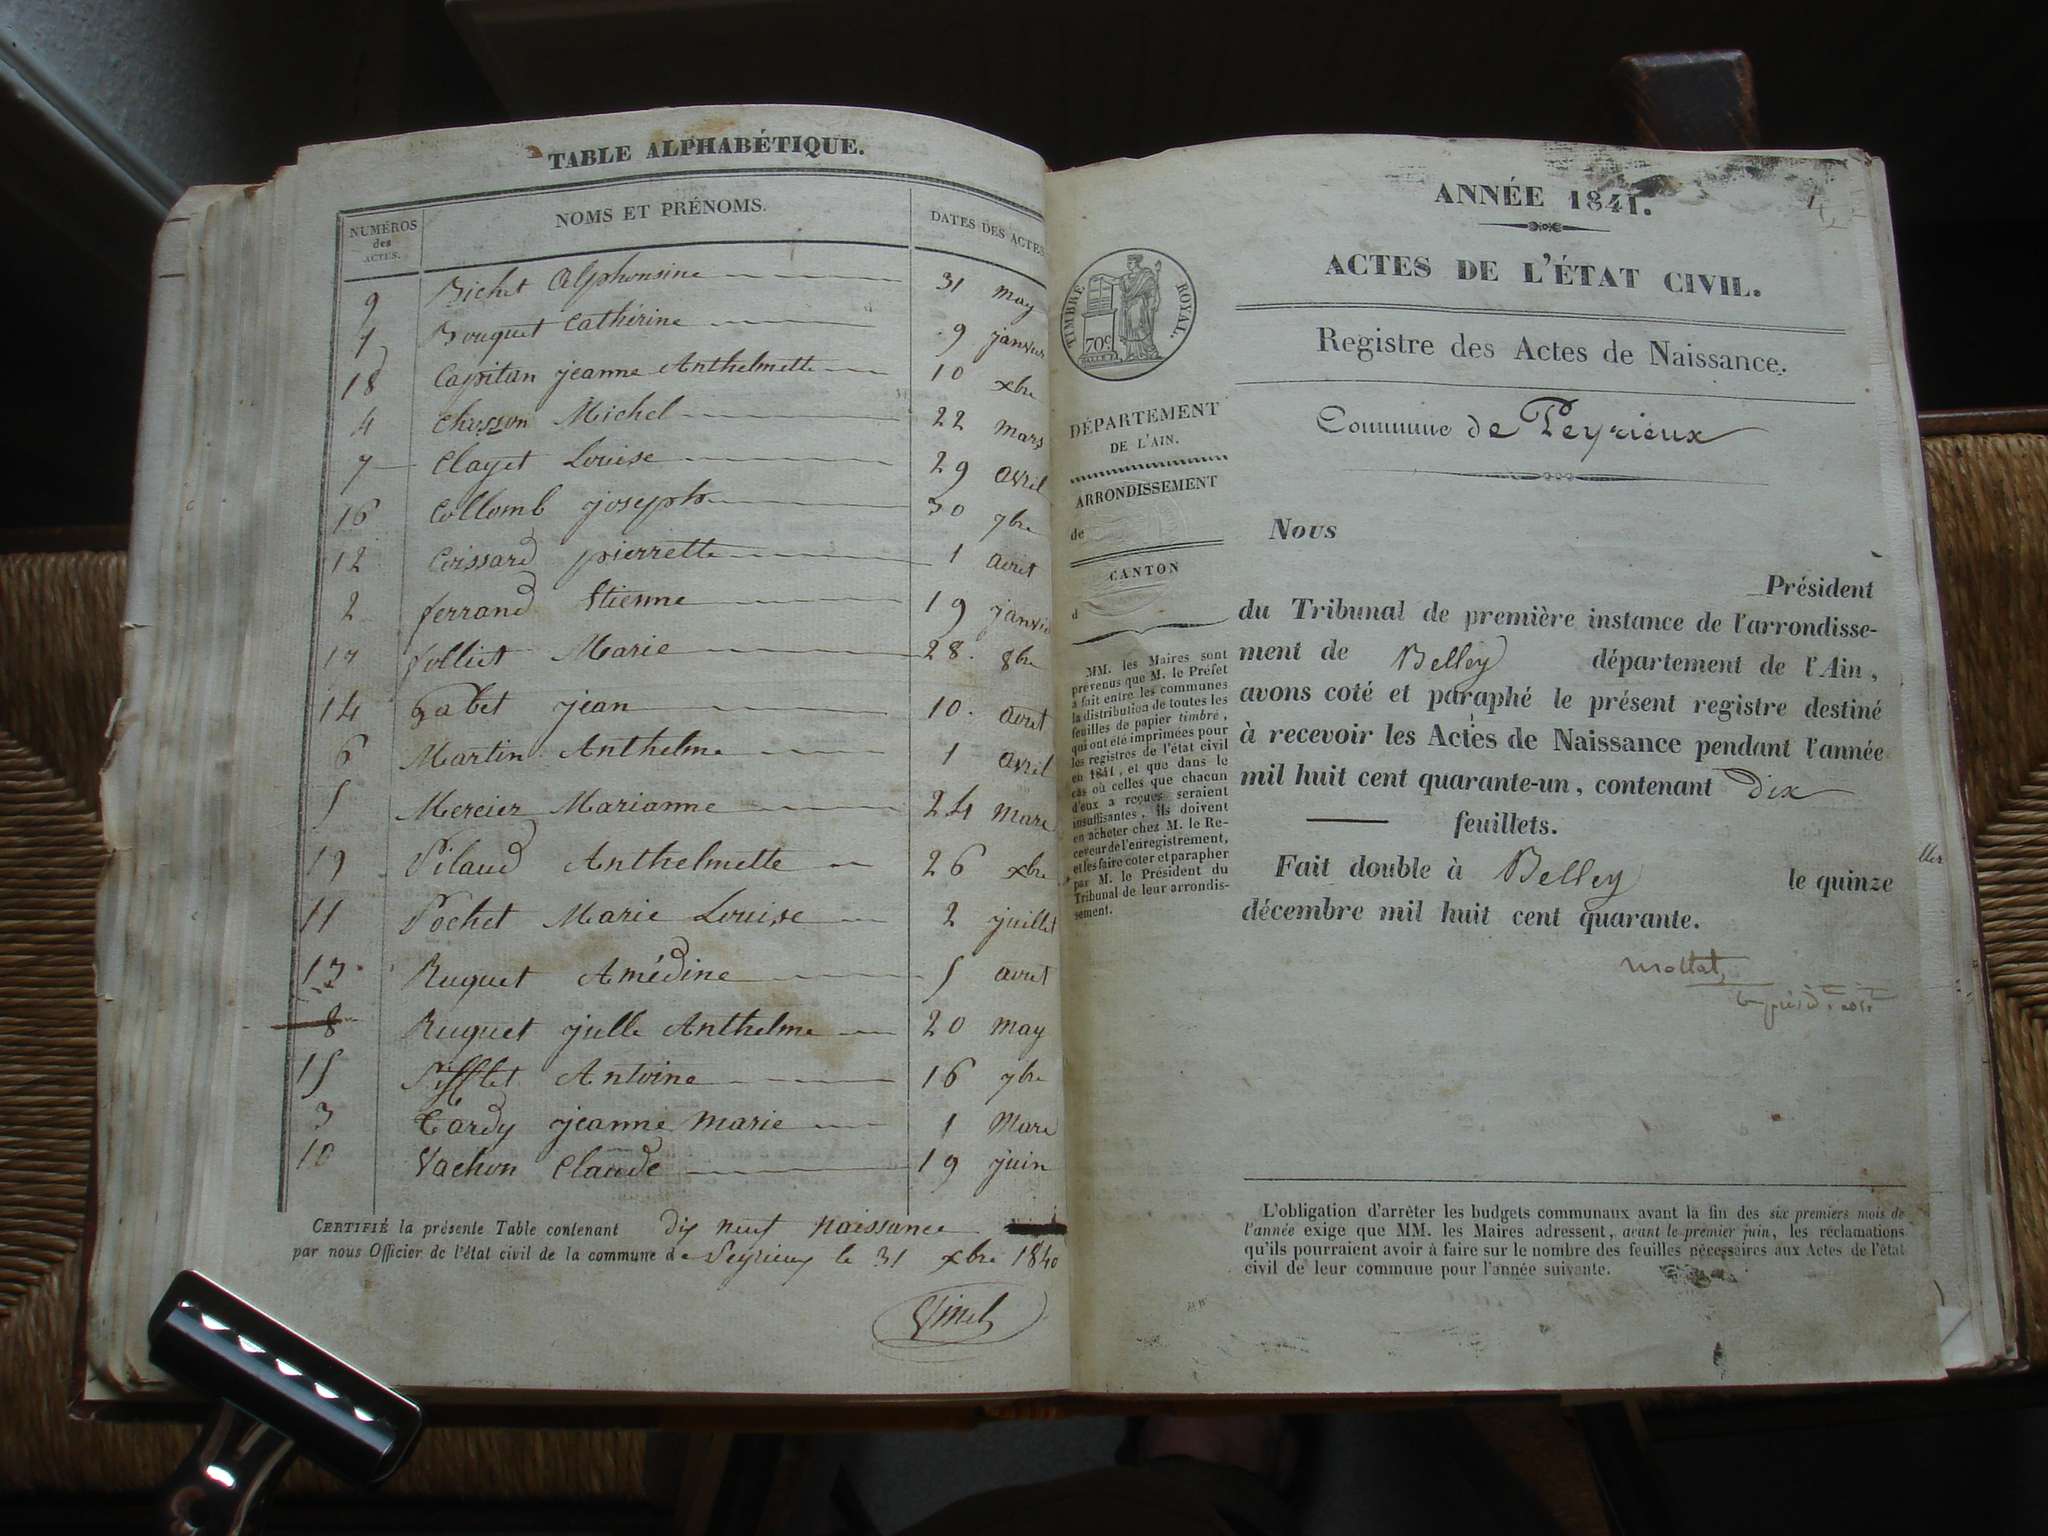 TABLE ALPHABÉTIQUE.
NUMÉROS des ACTES. NOMS ET PRÉNOMS. DATES DES ACTES
9 Bichet Alphonsine 31 may
1 Bouquet Catherine 9 janvier
18 Capitan jeanne Anthelmette 10 xbre
4 Chusson Michel 22 mars
7 Clayet Louise 29 avril
16 Collomb joseph 30 7bre
12 Coissard pierrette 1 aout
2 ferrand Etienne 19 janvier
17 folliet Marie 28 8bre
14 Gabet jean 10 aout
6 Martin Anthelme 1 avril
5 Mercier Marianne 24 Mars
19 Pilaud Anthelmette 26 xbre
11 Pochet Marie Louise 2 juillet
13 Ruguet Amédine 5 aout
8 Ruguet julle Anthelme 20 may
15 Sifflet Antoine 16 7bre
3 Tardy jeanne marie 1 Mars
10 Vachon Claude 19 juin
CERTIFIÉ la présente Table contenant dix neuf naissance
par nous Officier de l'état civil de la commune de Peyrieux le 31 xbre 1840
ANNÉE 1841.
ACTES DE L'ÉTAT CIVIL.
Registre des Actes de Naissance.
Commune de Peyrieux
TIMBRE ROYAL.
70c
DÉPARTEMENT
DE L'AIN.
ARRONDISSEMENT
de
CANTON
d
MM. les Maires sont
prévenus que M. le Préfet
a fait entre les communes
la distribution de toutes les
feuilles de papier timbré,
qui ont été imprimées pour
les registres de l'état civil
en 1841, et que dans le
cas où celles que chacun
d'eux a reçues seraient
insuffisantes, ils doivent
en acheter chez M. le Re-
ceveur de l'enregistrement,
et les faire coter et parapher
par M. le Président du
Tribunal de leur arrondis-
sement.
Nous
Président
du Tribunal de première instance de l'arrondisse-
ment de Belley département de l'Ain,
avons coté et paraphé le présent registre destiné
à recevoir les Actes de Naissance pendant l'année
mil huit cent quarante-un, contenant dix
feuillets.
Fait double à Belley le quinze
décembre mil huit cent quarante.
Mottat,
L'obligation d'arrêter les budgets communaux avant la fin des six premiers mois de
l'année exige que MM. les Maires adressent, avant le premier juin, les réclamations
qu'ils pourraient avoir à faire sur le nombre des feuilles nécessaires aux Actes de l'état
civil de leur commune pour l'année suivante.